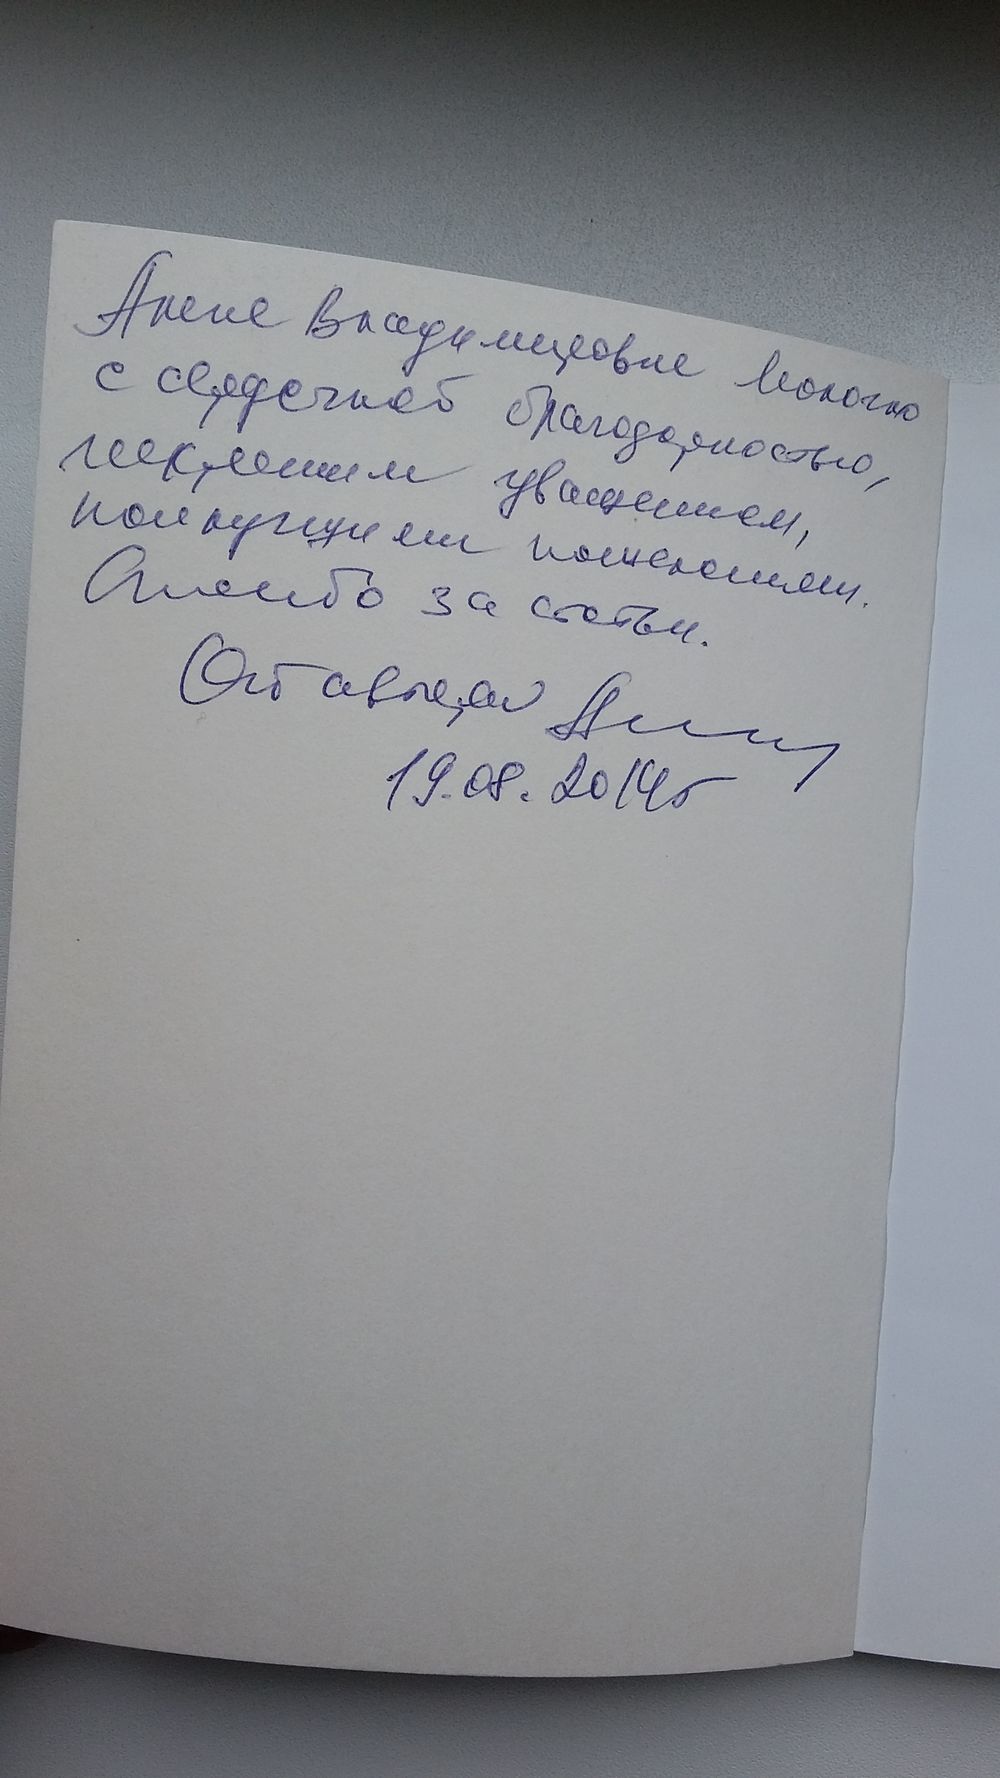 Анне Владимировне
с сердечной благодарностью,
искренним уважением,
наилучшими пожеланиями.
Спасибо за статьи.
От автора
19.08.2014г